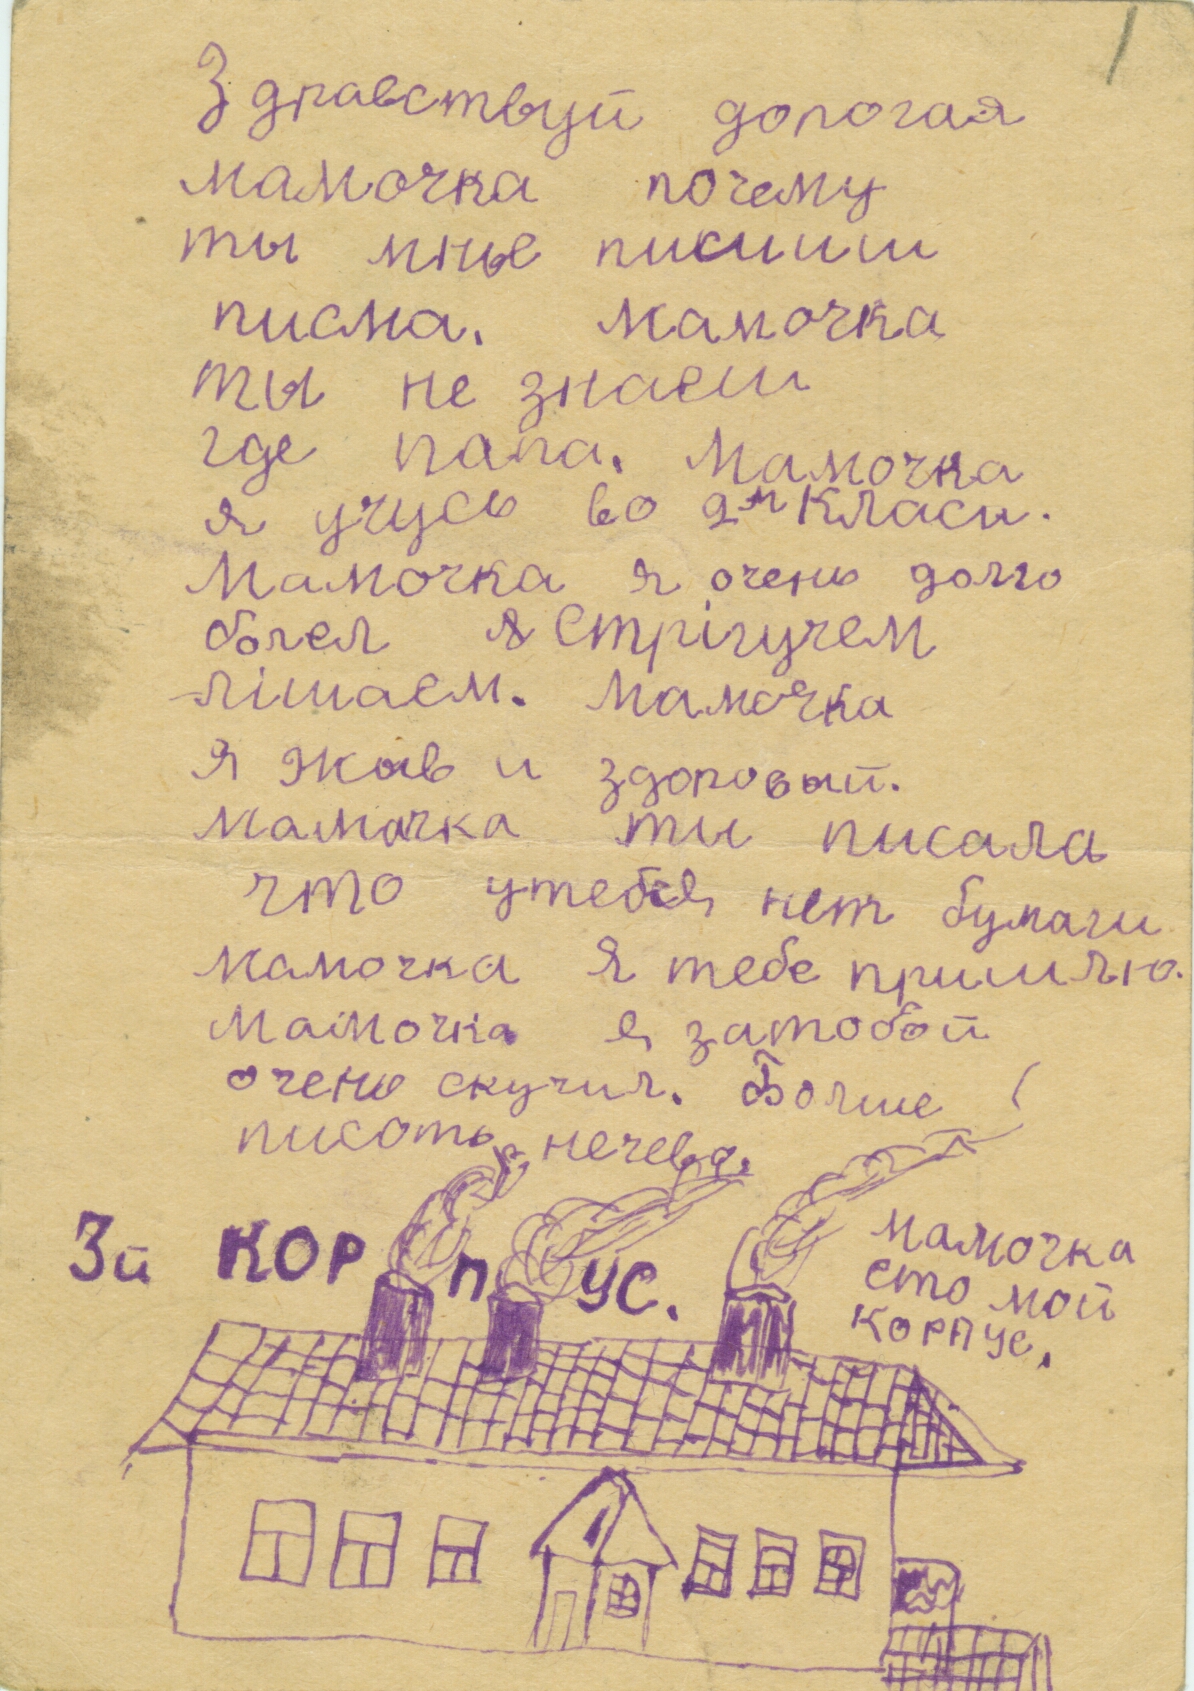 Здравствуй дорогая
мамочка почему
ты мне писиш
писма. мамочка
ты не знаеш
где папа. Мамочка
я учусь во 2м Класи.
Мамочка я очень долго
болел Стрігучем
лішаем. Мамочка
я жыв и здоровый.
мамочка ти писала
что утебя нет бумаги
мамочка Я тебе пришлю.
мамочка я затобой
очень скучил. Болше
писоть нечево.
3й КОРПУС.
мамочка
ето мой
Корпус.